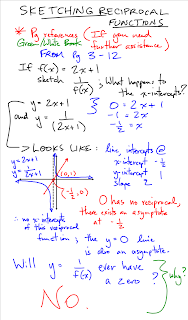 SKETCHING RECIPROCAL
FUNCTIONS
* Pg references (If you need
Green/White Book further assistance)
From Pg 3-12
If f(x) = 2x+1
sketch 1/f(x) ; What happens to
the x-intercepts?
y = 2x+1
and y = 1/(2x+1)
0 = 2x+1
-1 = 2x
-1/2 = x
> LOOKS LIKE:
line, intercepts @
x-intercept -1/2
y-intercept 1
slope 2
y=2x+1
y=1/(2x+1)
(0,1)
(-1/2,0)
0 has no reciprocal,
there exists an asymptote
at -1/2
∴ no x-intercepts
of this reciprocal
function; the y=0 line
is also an asymptote.
Will y = 1/f(x) ever have
a zero?
why?
NO.